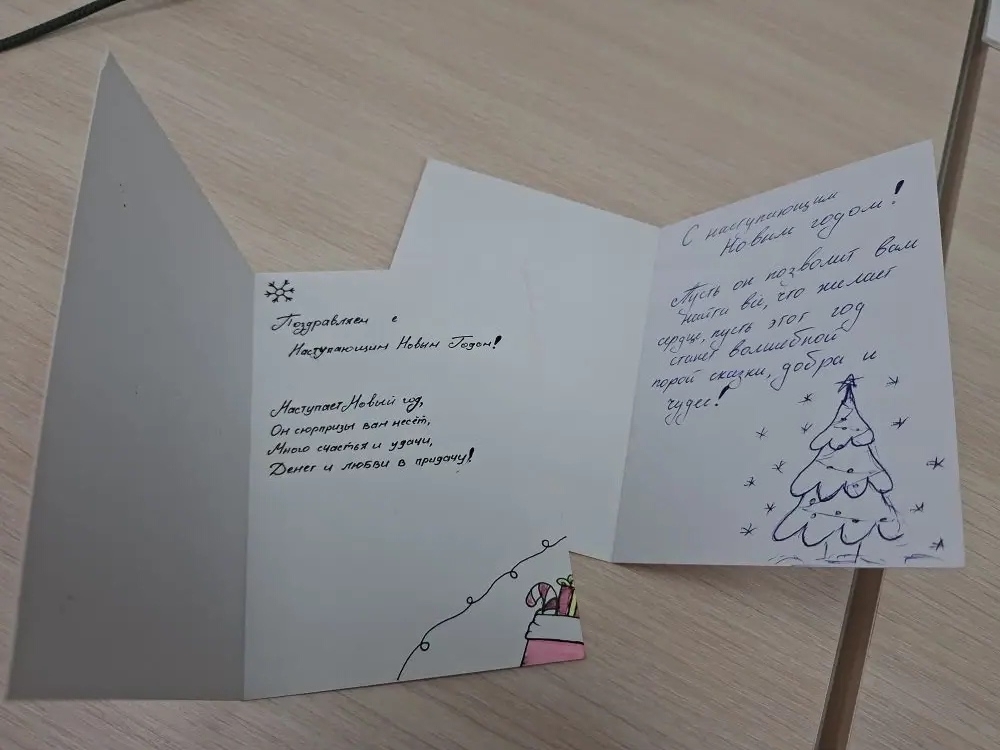 Поздравляем с
Наступающим Новым Годом!
Наступает Новый год,
Он сюрпризы вам несёт,
Много счастья и удачи,
Денег и любви в придачу!
С наступающим
Новым годом!
Пусть он позволит вам
найти всё, что желает
сердце, пусть этот год
станет волшебной
порой сказки, добра и
чудес!